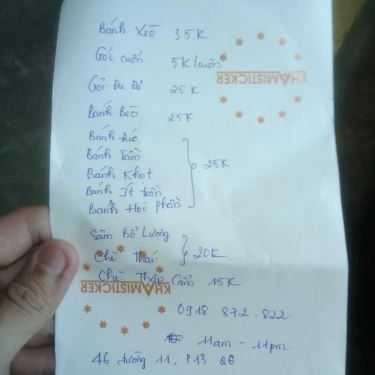 Bánh Xèo 35K
Gỏi cuốn 5K/cuốn
KHAMISTICKER
Gỏi Đu Đủ 25K
Bánh Bèo 25K
Bánh
Bánh Tằm
Bánh Khọt 25K
Bánh Ít trần
Bánh Hỏi
Sâm Bổ Lượng
Chè Thái 20K
Chè Thập Cẩm 15K
KHAMISTICKER
0918 872.822
11am - 11pm
46 đường 11, P13 Q6